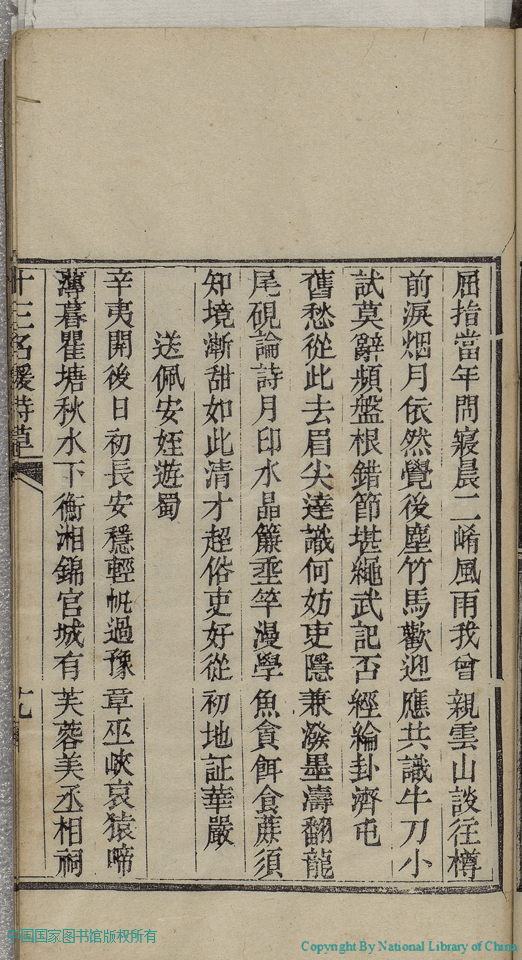 屈指當年問寢晨二崤風雨我曾親雲山談往樽
前淚烟月依然覺後塵竹馬歡迎應共識牛刀小
試莫辭頻盤根錯節堪繩武記否經綸卦濟屯
舊愁從此去眉尖達識何妨吏隱兼潑墨濤翻龍
尾硯論詩月印水晶簾垂竿漫學魚貪餌食蔗須
知境漸甜如此清才超俗吏好從初地証華嚴
送佩安姪遊蜀
辛夷開後日初長安穩輕帆過豫章巫峽哀猿啼
薄暮瞿塘秋水下衡湘錦官城有芙蓉美丞相祠
十三名媛詩草
十九
中国国家图书馆版权所有
Copyright By National Library of China